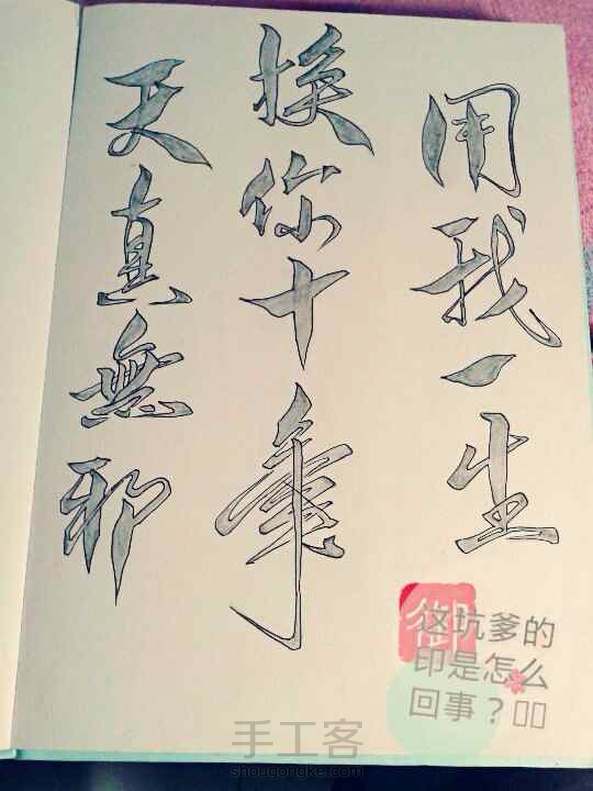 用我一生
换你十年
天真無邪
御
这坑爹的
印是怎么
回事？
手工客
shougongke.com